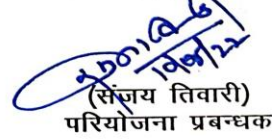 (संजय तिवारी)
परियोजना प्रबन्धक